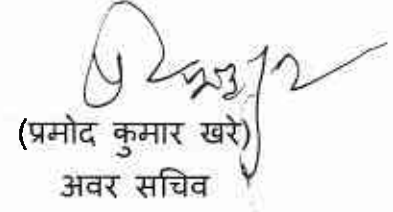 (प्रमोद कुमार खरे)
अवर सचिव